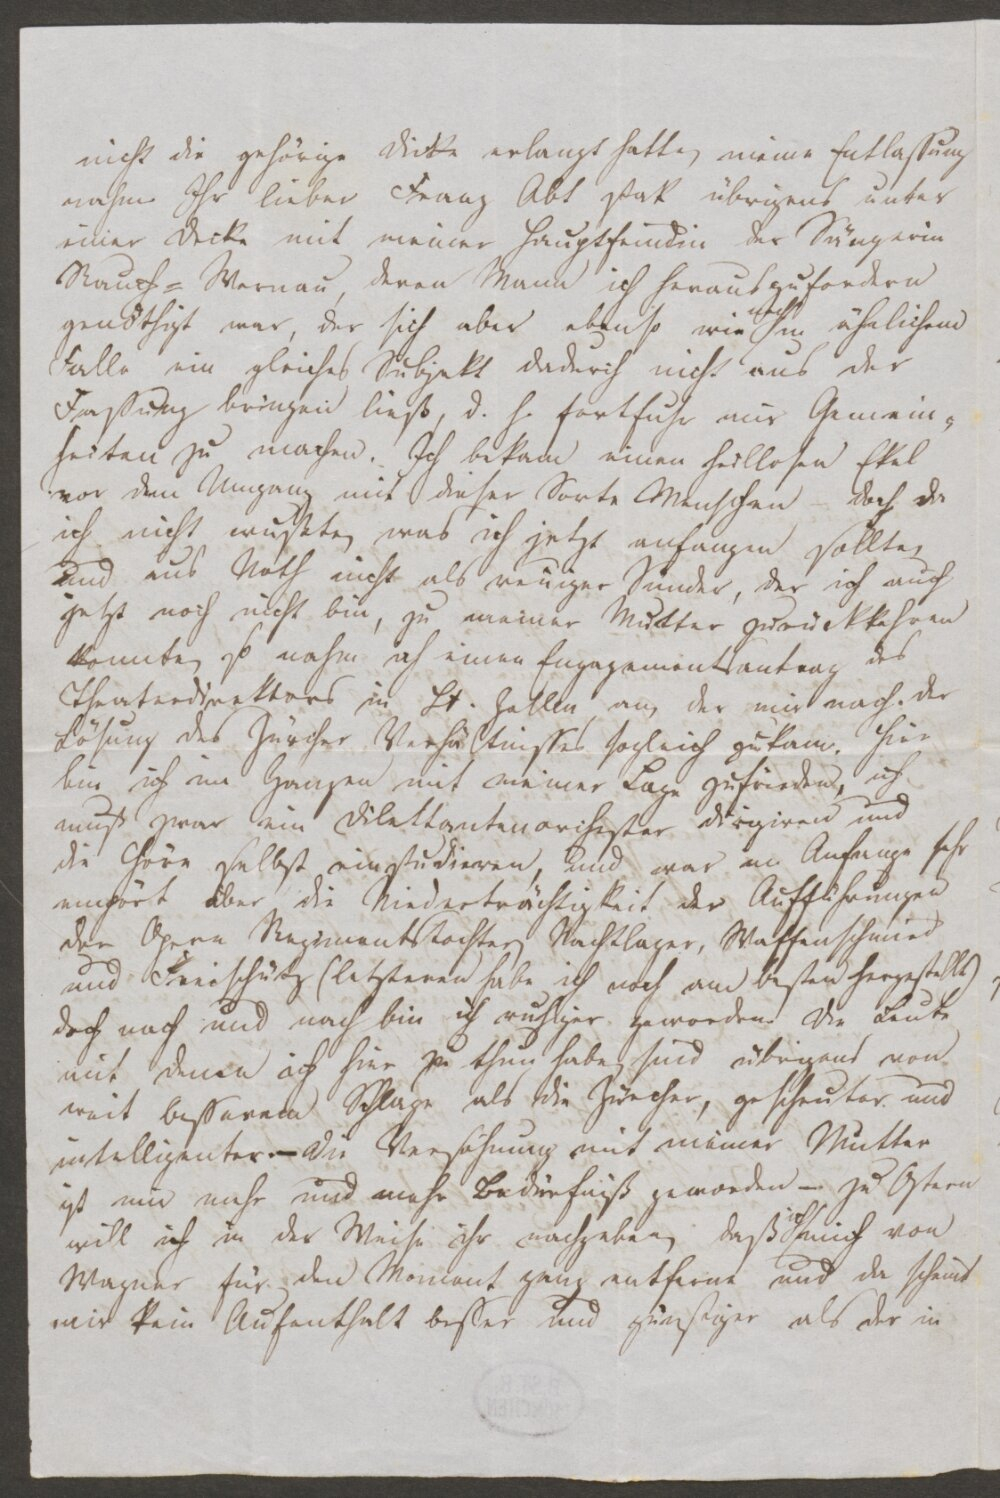 nicht die gehörige Dicke erlangt hatte, meine Entlassung
nahm. Ihr lieber Franz Abt stak übrigens unter
einer Decke mit meiner Hauptfeindin der Sängerin
Rauch-Wernau, deren Mann ich herauszufordern
genöthigt war, der sich aber ebenso wie noch im ähnlichem
Falle ein gleiches Subjekt dadurch nicht aus der
Fassung bringen ließ, d. h. fortfuhr mir Gemein-
heiten zu machen. Ich bekam einen heillosen Ekel
vor dem Umgang mit dieser Sorte Menschen – doch da
ich nicht wußte, was ich jetzt anfangen sollte,
und aus Noth nicht als reuiger Sünder, der ich auch
jetzt noch nicht bin, zu meiner Mutter zurückkehren
konnte, so nahm ich einen Engagementsantrag des
Theaterdirektors in St. Gallen an, der mir nach der
Lösung des Zürcher Verhältnisses sogleich zukam. Hier
bin ich im Ganzen mit meiner Lage zufrieden, ich
muß zwar ein Dilettantenorchester dirigiren und
die Chöre selbst einstudieren, und war im Anfange sehr
empört über die Niederträchtigkeit der Aufführungen
der Opern Regimentstochter, Nachtlager, Waffenschmied
und Freischütz (letzteren habe ich noch am besten hergestellt)
doch nach und nach bin ich ruhiger geworden. Die Leute
mit denen ich hier zu thun habe, sind übrigens von
weit besserem Schlage als die Zürcher, gescheuter und
intelligenter. – Die Versöhnung mit meiner Mutter
ist mir mehr und mehr Bedürfniß geworden – zu Ostern
will ich in der Weise ihr nachgeben, daß ich mich von
Wagner für den Moment ganz entferne und da scheint
mir kein Aufenthalt besser und günstiger als der in